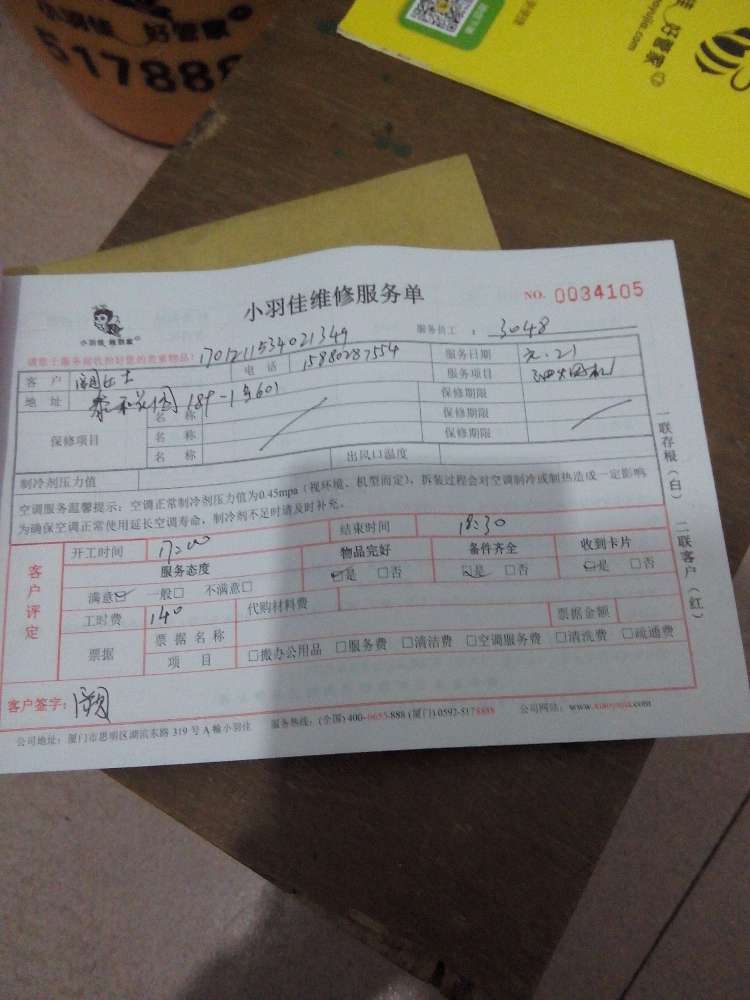 小羽佳 好管家
517888
好管家
小羽佳维修服务单
NO. 0034105
小羽佳 好管家
服务员工 : 3048
请您上服务前收拾好您的贵重物品!
170121153402 1349
客户 女士 电话 15880287554 服务日期 元.21
地址 泰和花园189-1号601 服务项目 油烟机
保修项目 名称 保修期限
名称 保修期限
名称 保修期限
制冷剂压力值 出风口温度
空调服务温馨提示:空调正常制冷剂压力值为0.45mpa(视环境、机型而定),拆装过程会对空调制冷或制热造成一定影响
为确保空调正常使用延长空调寿命,制冷剂不足时请及时补充。
一联存根(白) 二联客户(红)
客户评定
开工时间 17:00 结束时间 18:30
服务态度 物品完好 备件齐全 收到卡片
满意☑ 一般□ 不满意□ ☑是 □否 ☑是 □否 ☑是 □否
工时费 140 代购材料费 票据金额
票据 票据名称
项目 □搬办公用品 □服务费 □清洁费 □空调服务费 □清洗费 □疏通费
客户签字:
公司地址:厦门市思明区湖滨东路319号A幢小羽佳 服务热线:(全国)400-6655-888 (厦门)0592-5178888 公司网站:www.xiaoyujia.com